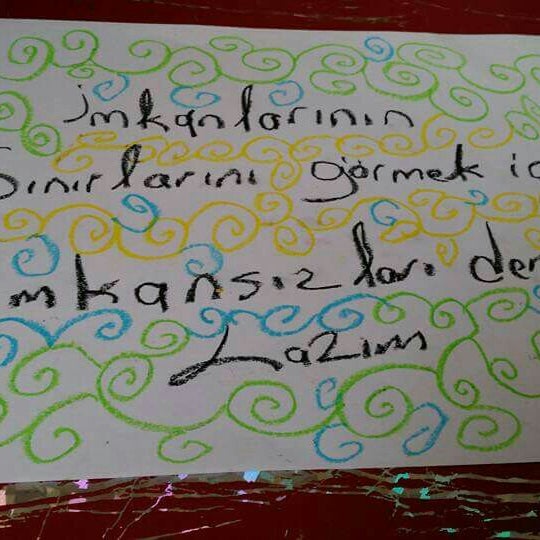 imkanlarının
Sınırlarını görmek iç
imkansızları den
Lazım